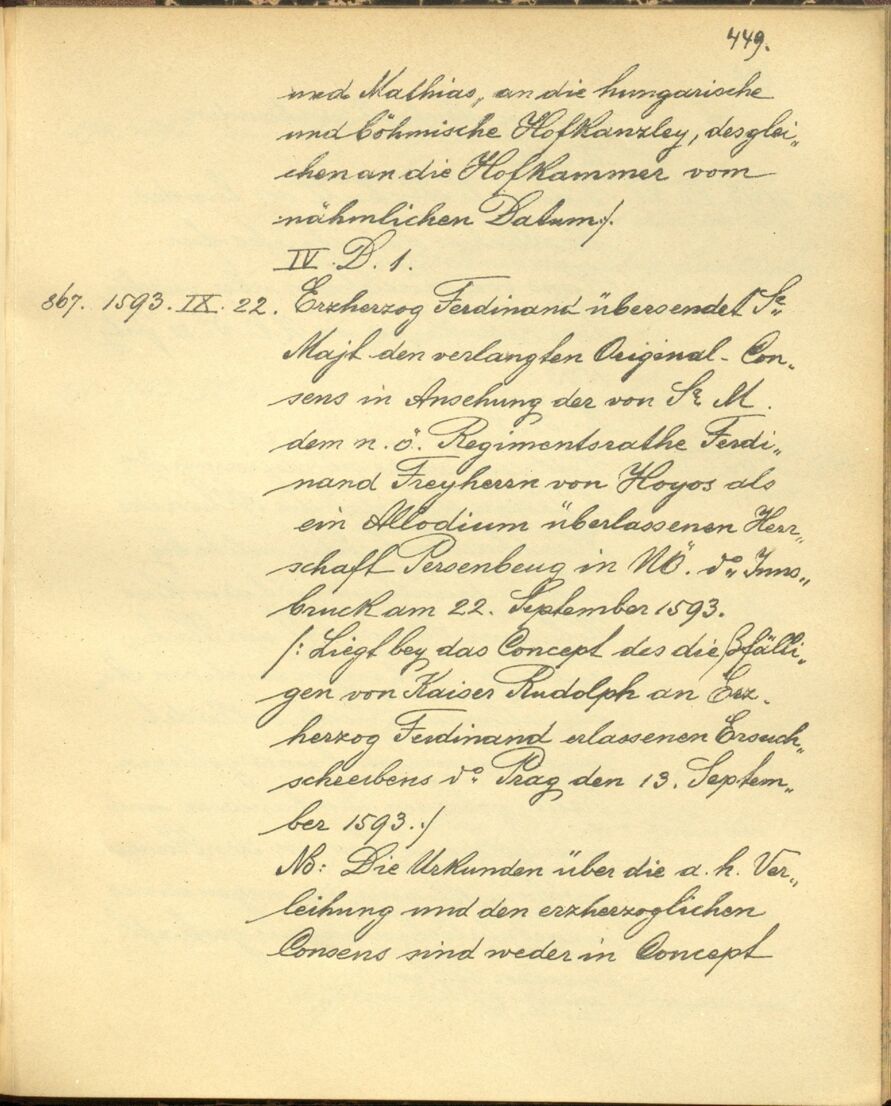 449.
und Mathias, an die hungarische
und böhmische Hofkanzley, desglei„
chen an die Hofkammer vom
nähmlichen Datum/.
IV. D. 1.
867. 1593. IX. 22. Erzherzog Ferdinand übersendet Sr„
Majt den verlangten Original-Con„
sens in Ansehung der von Sr M.
dem n. ö. Regimentsrathe Ferdi„
nand Freyherrn von Hoyos als
ein Allodium überlassenen Herr„
schaft Persenbeug in NÖ. do„ Inns„
bruck am 22. September 1593.
/: Liegt bey das Concept des dießfälli„
gen von Kaiser Rudolph an Erz„
herzog Ferdinand erlassenen Ersuch„
schreibens do: Prag den 13. Septem„
ber 1593. :/
NB: Die Urkunden über die a. h. Ver„
leihung und den erzherzoglichen
Consens sind weder in Concept